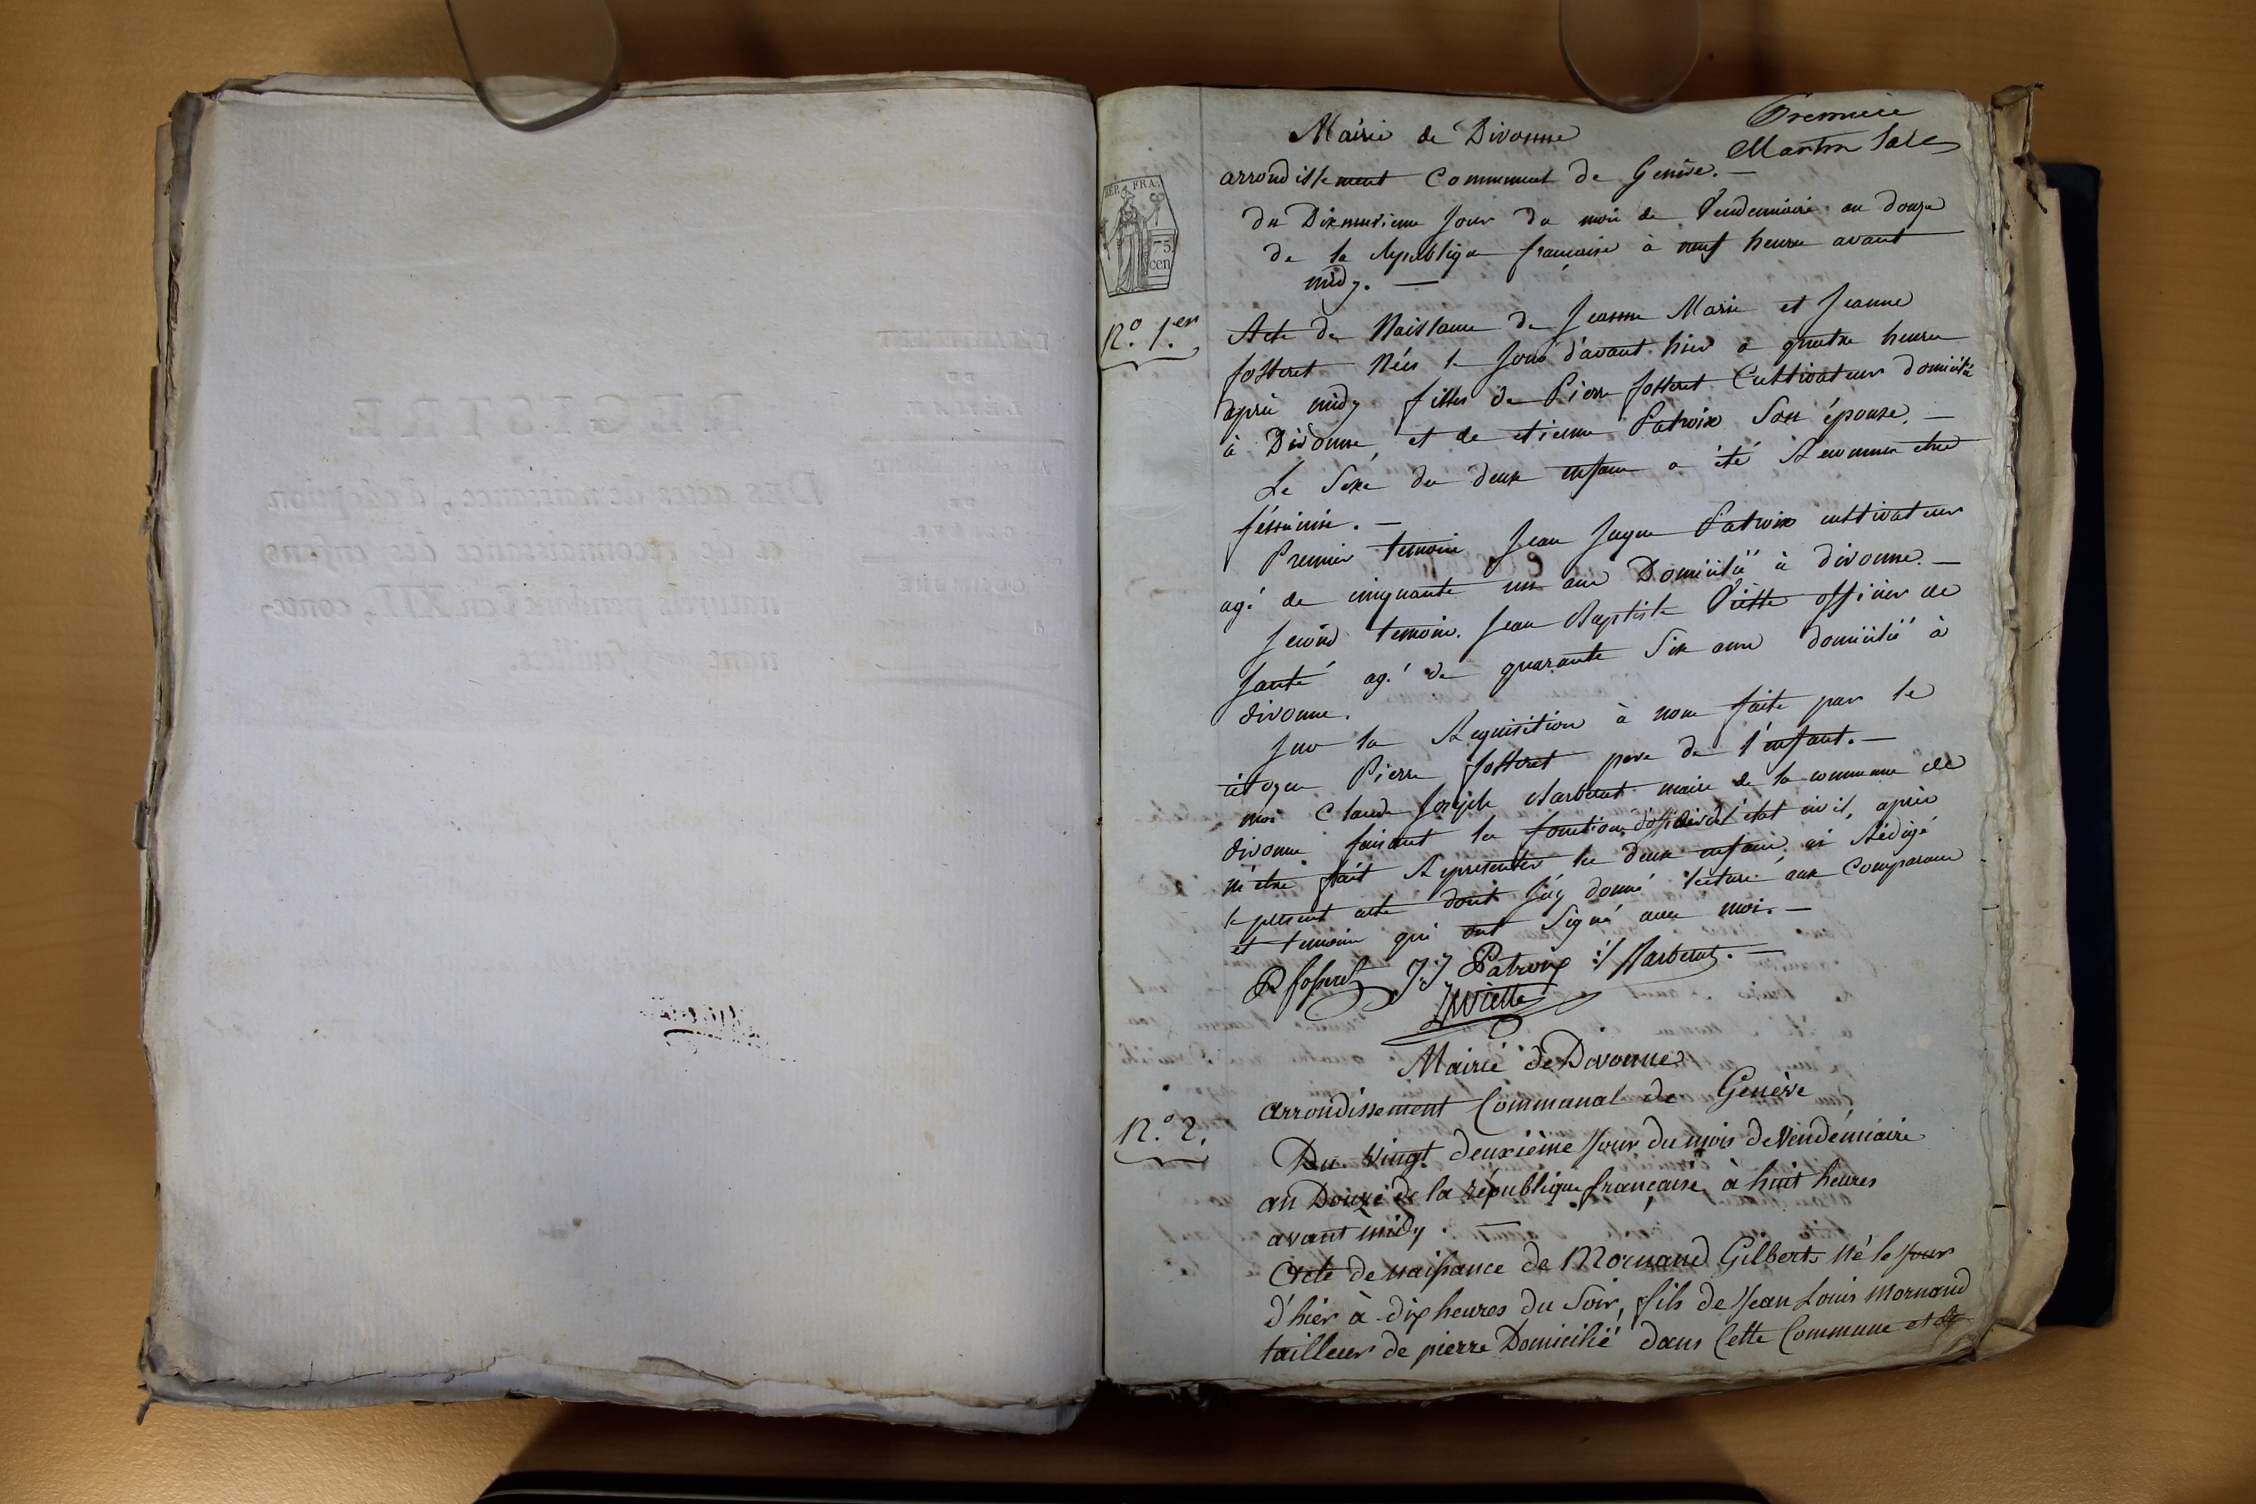 Premiere
Martin
Mairie de Divonne
arrondissement Communal de Genève. —
REP. FRA.
75
cen
du Dixneuvieme jour du mois de Vendemiaire an douze
de la Republique francaise à neuf heures avant
midy. —
N.º 1.er
Acte de Naissance de Jeanne Marie et Jeanne
fosseret Nées le jour d'avant hier a quatre heures
après midy filles de Pierre fosseret Cultivateur domicilié
à Divonne, et de etienne Patroix Son épouse. —
Le Sexe des deux enfans a été Reconnu etre
féminin. —
Premier temoin Jean Jaque Patroix cultivateur
agé de cinquante un ans Domicilié à divonne. —
Second temoin. Jean Baptiste Viette officier de
santé agé de quarante Six ans domicilié à
divonne.
Sur la Requisition à nous faite par le
citoyen Pierre fosseret pere de l'enfant. —
moi Claude Joseph Marberet maire de la commune de
divonne faisant les fonctions d'officier de l'état civil, après
m'etre fait Representer les deux enfans, ai Rédigé
le present acte dont j'ay donné lecture aux Comparans
et temoins qui ont Signé avec moi. —
P fosseret J: J Patroix Marberet. —
Viette
Mairie de Divonne
arrondissement Communal de Genève
N.º 2.
Du Vingt deuxième Jour du mois de Vendémiaire
an Douze de la république française, à huit heures
avant midy. —
Acte de naissance de Mornand Gilbert, Né le Jour
d'hier à dix heures du Soir, fils de Jean Louis Mornand
tailleur de pierre Domicilié dans Cette Commune et de
REGISTRE
DES actes de naissance, d'adoption
et de reconnaissance des enfans
naturels pendant l'an XII, conte-
nant feuilles.
DÉPARTEMENT
DU
LÉMAN